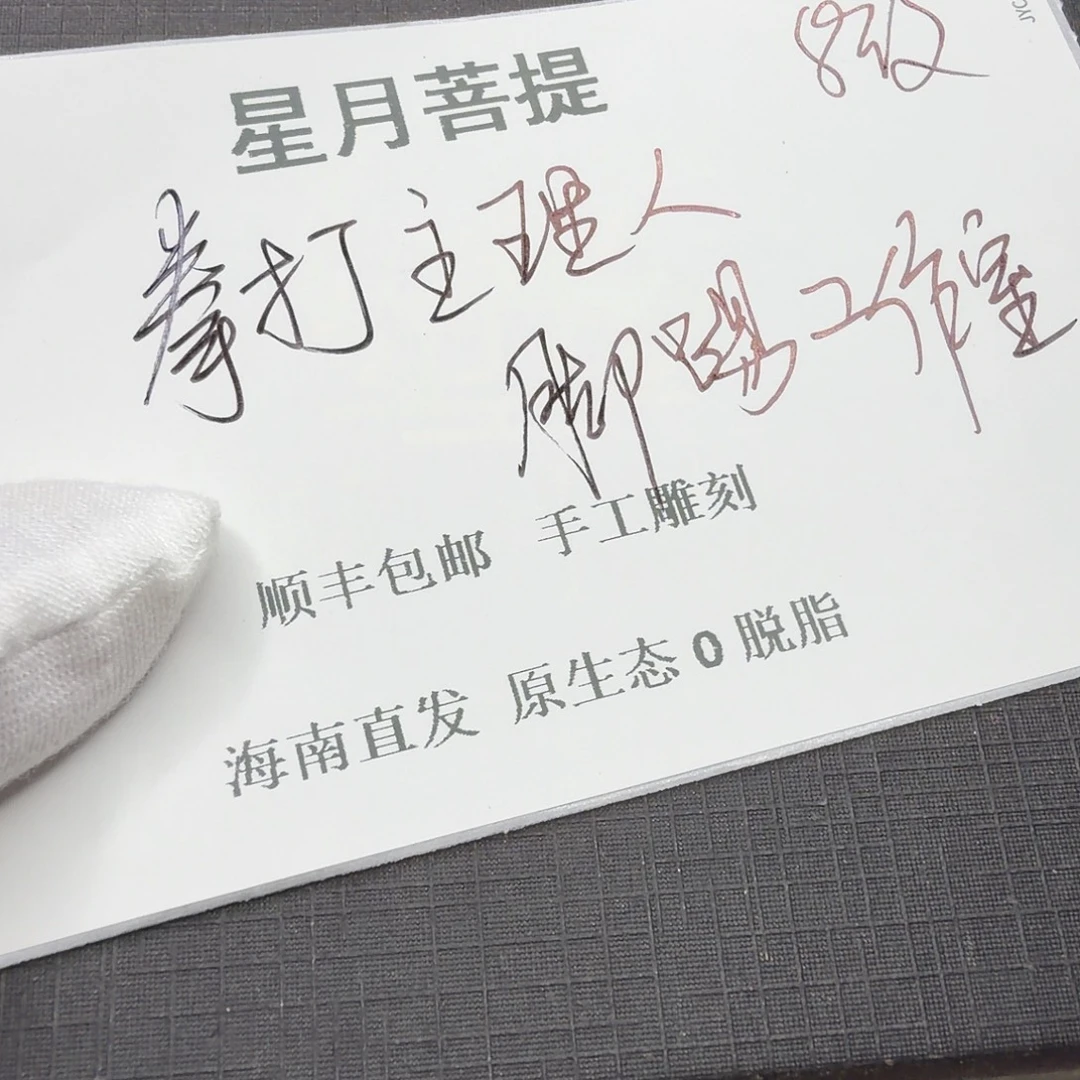 8级
JYC
星月菩提
拳打主理人
脚踢工作室
顺丰包邮 手工雕刻
海南直发 原生态0脱脂